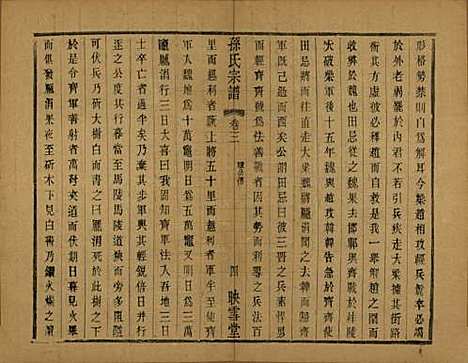 形格勢禁則自爲解耳今梁趙相攻輕兵銳卒必竭
於外老弱罷於內君不若引兵疾走大梁據其街路
衝其方虛彼必釋趙而自救是我一舉解趙之圍而收
弊於魏也田忌從之魏果去邯鄲與齊戰於桂陵
大破梁軍後十五年魏與趙攻韓韓告急於齊齊使
田忌將而往直走大梁魏將龐涓聞之去韓而歸齊
軍既已過而西矣公謂田忌曰彼三晉之兵素悍勇
而輕齊齊號爲怯善戰者因其勢而利導之兵法百
孫氏宗譜 卷三
四 映雪堂
里而趨利者蹶上將五十里而趨利者軍半至使齊
軍入魏地爲十萬竈明日爲五萬竈又明日爲三萬
竈龐涓行三日大喜曰我固知齊軍怯入吾地三日
士卒亡者過半矣乃棄其步軍與其輕銳倍日并行
逐之公度其行暮當至馬陵馬陵道狹而旁多阻隘
可伏兵乃斫大樹白而書之曰龐涓死于此樹之下
於是令齊軍善射者萬弩夾道而伏期日暮見火舉
而俱發龐涓果夜至斫木下見白書乃鑽火燭之讀